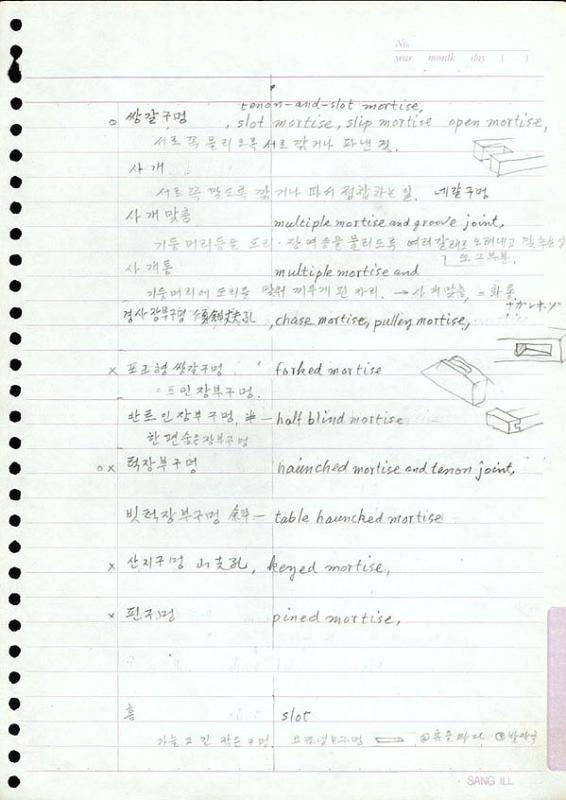 No.
year month day ( )
tenon-and-slot mortise,
○ 쌍갈구멍 , slot mortise, slip mortise open mortise,
서로 꼭 물리도록 서로 깎거나 파낸 것.
사개
서로 꼭 맞도록 깎거나 파서 접합하는 일. 네갈구멍
사개맞춤 multiple mortise and groove joint,
기둥머리등을 도리·장여등을 물리도록 여러갈래로 오려내고
또 그 부분.
사개통 multiple mortise and
기둥머리에 도리를 맞춰 끼우게 된 자리. → 사개맞춤, = 화통
경사장부구멍 , chase mortise, pulley mortise,
× 포크형 쌍갈구멍 forked mortise
트인 장부구멍.
반트인장부구멍, 半— half blind mortise
한편숨은장부구멍
○× 턱장부구멍 haunched mortise and tenon joint,
빗턱장부구멍 — table hauncked mortise
× 산지구멍 山支孔, keyed mortise,
× 핀구멍 pined mortise,
홈 slot
가늘고 긴 작은 구멍
SANG ILL